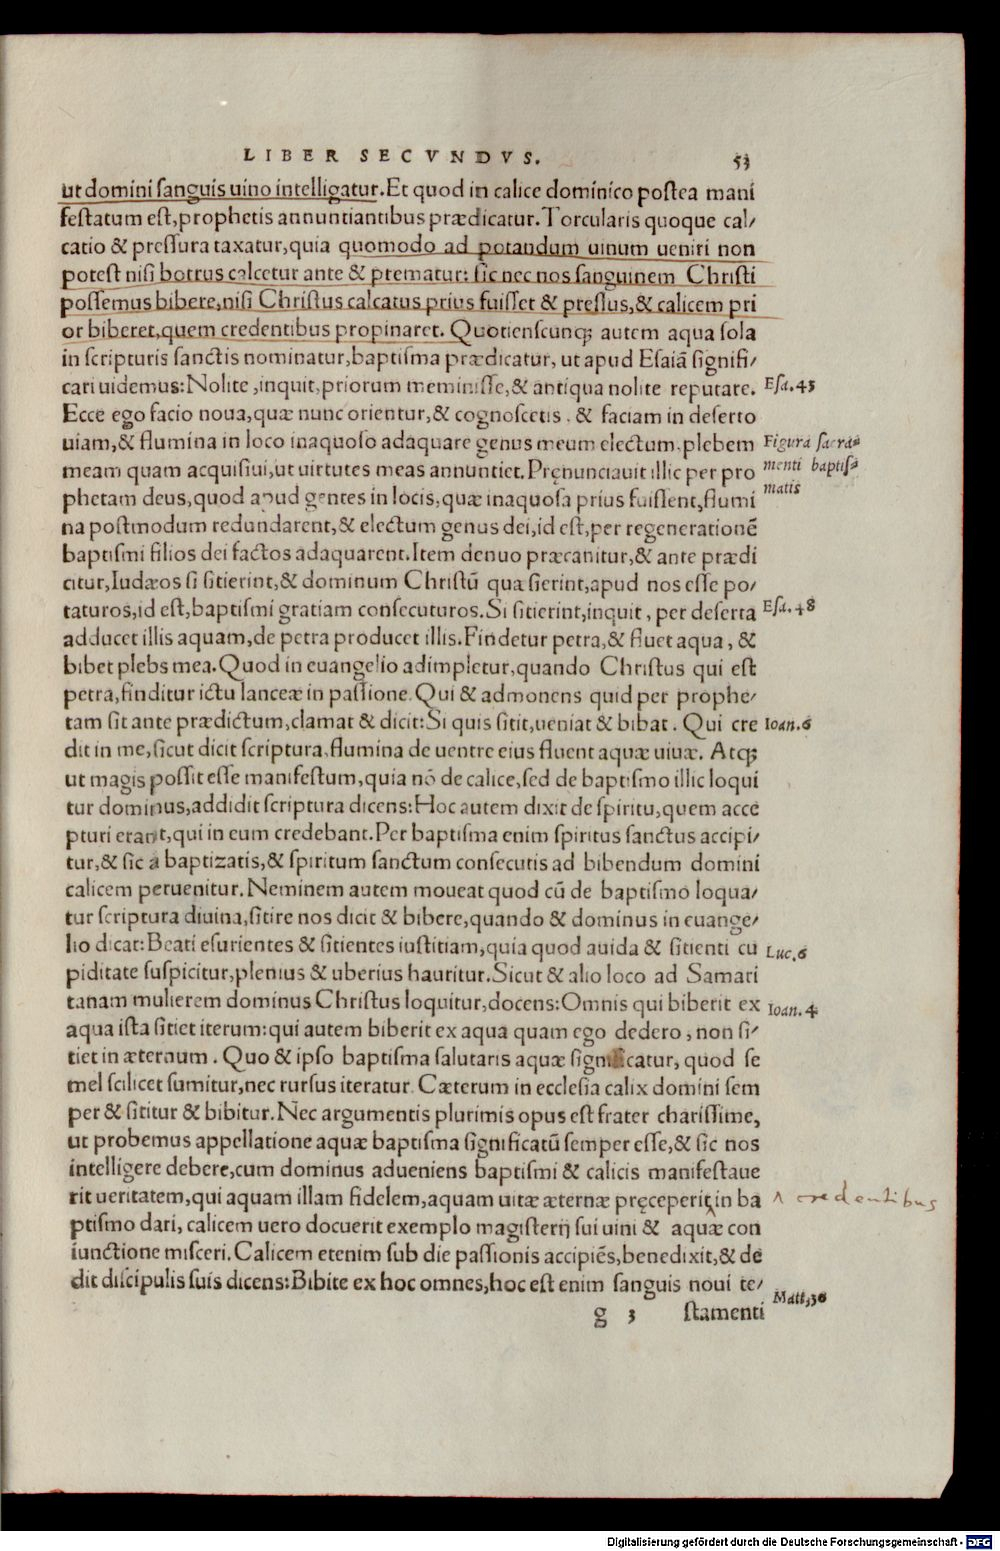 LIBER SECVNDVS. 53
ut domini sanguis uino intelligatur. Et quod in calice dominico postea mani
festatum est, prophetis annuntiantibus prædicatur. Torcularis quoque cal/
catio & pressura taxatur, quia quomodo ad potandum uinum ueniri non
potest nisi botrus calcetur ante & prematur: sic nec nos sanguinem Christi
possemus bibere, nisi Christus calcatus prius fuisset & pressus, & calicem pri
or biberet, quem credentibus propinaret. Quotienscunq; autem aqua sola
in scripturis sanctis nominatur, baptisma prædicatur, ut apud Esaiā signifi/
cari uidemus: Nolite, inquit, priorum meminisse, & antiqua nolite reputare. Esa. 43
Ecce ego facio noua, quæ nunc orientur, & cognoscetis. & faciam in deserto
uiam, & flumina in loco inaquoso adaquare genus meum electum, plebem Figura sacra=
meam quam acquisiui, ut uirtutes meas annuntiet. Pręnunciauit illic per pro menti baptis=
phetam deus, quod apud gentes in locis, quæ inaquosa prius fuissent, flumi matis
na postmodum redundarent, & electum genus dei, id est, per regenerationē
baptismi filios dei factos adaquarent. Item denuo præcanitur, & ante prædi
citur, Iudæos si sitierint, & dominum Christū quæsierint, apud nos esse po/
taturos, id est, baptismi gratiam consecuturos. Si sitierint, inquit, per deserta Esa. 48
adducet illis aquam, de petra producet illis. Findetur petra, & fluet aqua, &
bibet plebs mea. Quod in euangelio adimpletur, quando Christus qui est
petra, finditur ictu lanceæ in passione. Qui & admonens quid per prophe/
tam sit ante prædictum, clamat & dicit: Si quis sitit, ueniat & bibat. Qui cre Ioan. 6
dit in me, sicut dicit scriptura, flumina de uentre eius fluent aquæ uiuæ. Atq;
ut magis possit esse manifestum, quia nō de calice, sed de baptismo illic loqui
tur dominus, addidit scriptura dicens: Hoc autem dixit de spiritu, quem acce
pturi erant, qui in eum credebant. Per baptisma enim spiritus sanctus accipi/
tur, & sic a baptizatis, & spiritum sanctum consecutis ad bibendum domini
calicem peruenitur. Neminem autem moueat quod cū de baptismo loqua/
tur scriptura diuina, sitire nos dicit & bibere, quando & dominus in euange/
lio dicat: Beati esurientes & sitientes iustitiam, quia quod auida & sitienti cu Luc. 6
piditate suspicitur, plenius & uberius hauritur. Sicut & alio loco ad Samari
tanam mulierem dominus Christus loquitur, docens: Omnis qui biberit ex Ioan. 4
aqua ista sitiet iterum: qui autem biberit ex aqua quam ego dedero, non si/
tiet in æternum. Quo & ipso baptisma salutaris aquæ significatur, quod se
mel scilicet sumitur, nec rursus iteratur. Cæterum in ecclesia calix domini sem
per & sititur & bibitur. Nec argumentis plurimis opus est frater charissime,
ut probemus appellatione aquæ baptisma significatū semper esse, & sic nos
intelligere debere, cum dominus adueniens baptismi & calicis manifestaue
rit ueritatem, qui aquam illam fidelem, aquam uitæ æternæ pręceperit ‸ in ba ‸ credentibus
ptismo dari, calicem uero docuerit exemplo magisterij sui uini & aquæ con
iunctione misceri. Calicem etenim sub die passionis accipiēs, benedixit, & de
dit discipulis suis dicens: Bibite ex hoc omnes, hoc est enim sanguis noui te/ Matt. 36
g 3 stamenti
Digitalisierung gefördert durch die Deutsche Forschungsgemeinschaft - DFG